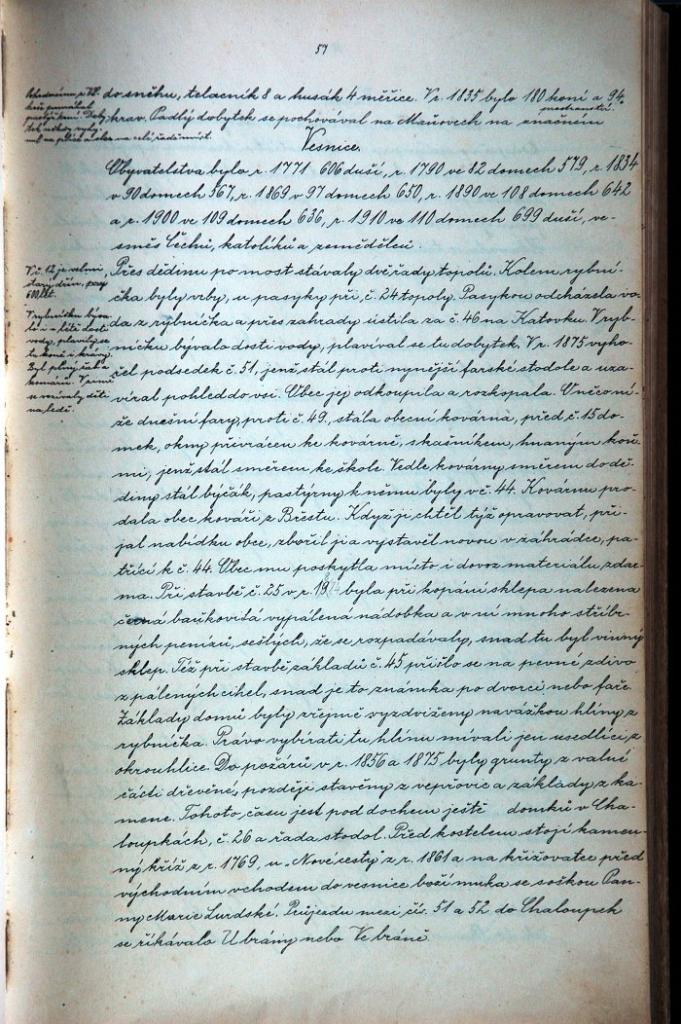 57
do sněhu, telacník 8 a husák 4 měřice. V r. 1835 bylo 180 koní a 94
krav. Padlý dobytek se pochovával na Maňovech na značném
Vesnice.
Obyvatelstva bylo r. 1771 606 duší, r. 1790 ve 82 domech 579, r. 1834
v 90 domech 567, r. 1869 v 97 domech 650, r. 1890 ve 108 domech 642
a r. 1900 ve 109 domech 636, r. 1910 ve 110 domech 699 duší, ve-
směs Čechů, katolíků a zemědělců.
V č. 12 je velmi
starý dům, prý
600 let.
Přes dědinu po most stávaly dvě řady topolů. Kolem rybní-
čka byly vrby, u pasyky při č. 24 topoly. Pasykou odcházela vo-
da z rybníčka a přes zahrady ústila za č. 46 na Katovku. V ryb-
níčku bývalo dosti vody, plavíval se tu dobytek. V r. 1875 vyho-
řel podsedek č. 51, jenž stál proti nynější farské stodole a uza-
víral pohled do vsi. Obec jej odkoupila a rozkopala. Uněčoní-
že dnešní fary, proti č. 49, stála obecní kovárna, před č. 15 do-
mek, okny přivrácen ke kovárně, s kašníkem, hnaným koň-
mi, jenž stál směrem ke škole. Vedle kovárny směrem do dě-
diny stál býčák, pastýrny k němu byly v č. 44. Kovárnu pro-
dala obec kováři z Břestu. Když ji chtěl týž opravovat, při-
jal nabídku obce, zbořil ji a vystavěl novou v záhrádce, pa-
třící k č. 44. Obec mu poskytla místo i dovoz materiálu zdar-
ma. Při stavbě č. 25 v r. byla při kopání sklepa nalezena
černá baňkovitá vypálená nádobka a v ní mnoho stříbr-
ných penízů, sešlých, že se rozpadávaly, snad tu byl vinný
sklep. Též při stavbě základů č. 45 přišlo se na pevné zdivo
z pálených cihel, snad je to známka po dvorci nebo faře.
Základy domů byly zřejmě vyzdviženy navážkou hlíny z
rybníčka. Právo vybírati tu hlínu mívali jen usedlíci z
okrouhlice. Do požárů v r. 1856 a 1875 byly grunty z valné
části dřevěné, později stavěny z vepřovic a základy z ka-
mene. Tohoto času jest pod dochem ještě domků v Cha-
loupkách, č. 26 a řada stodol. Před kostelem stojí kamen-
ný kříž z r. 1769, u „Nové cesty" z r. 1861 a na křižovatce před
východním vchodem do vesnice boží muka se soškou Pan-
ny Marie Lurdské. Průjezdu mezi čís. 51 a 52 do Chaloupek
se říkávalo U brány nebo Ve bráně.